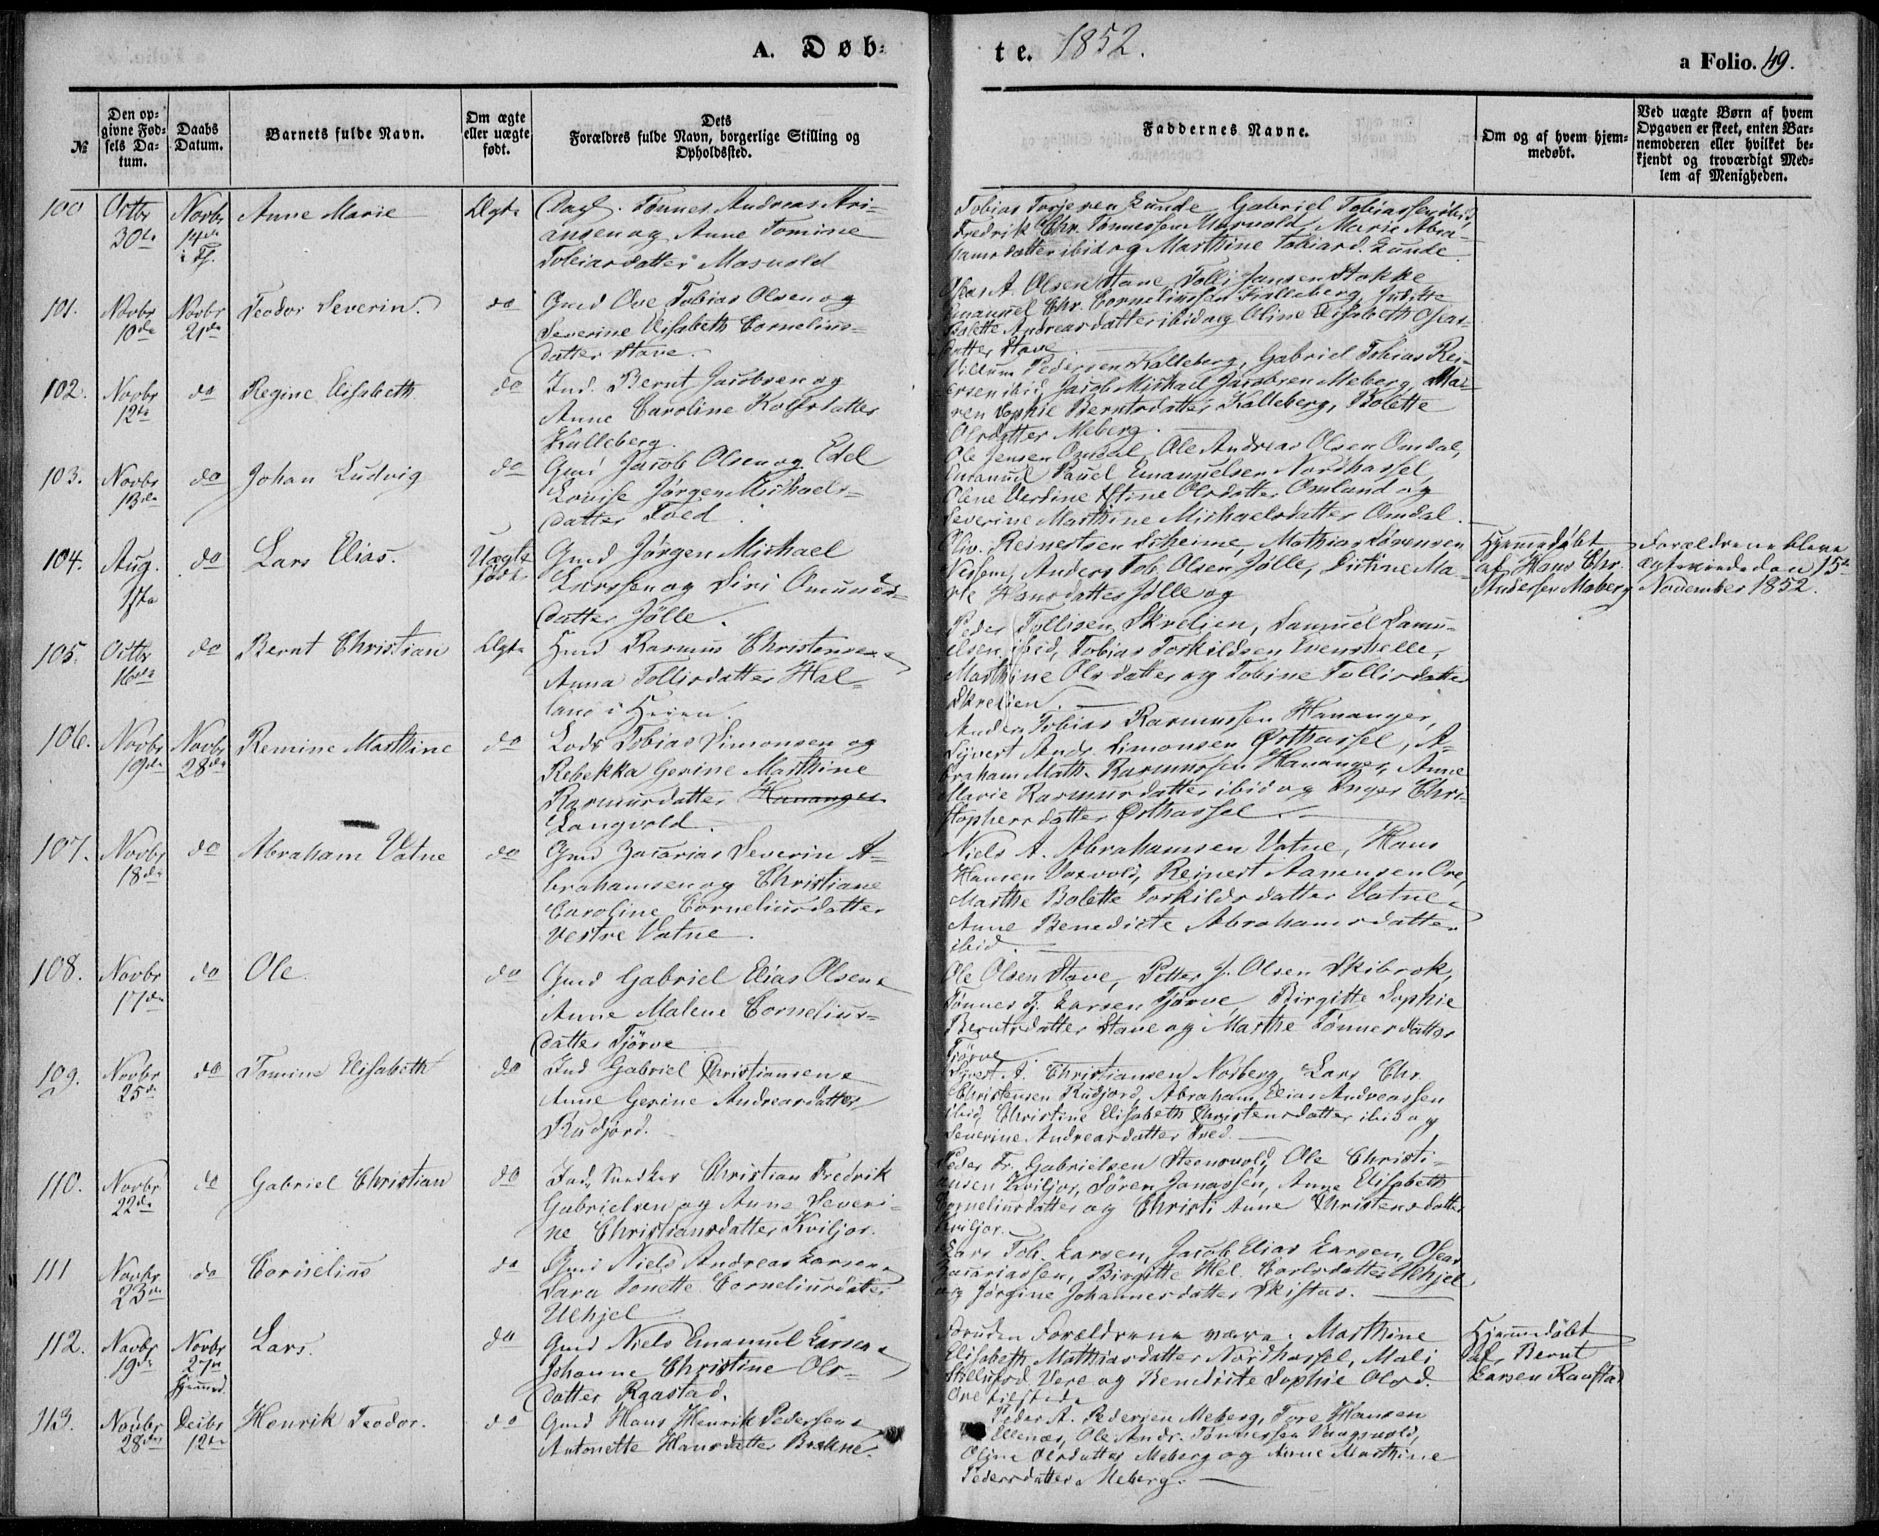 A. Døb-
te. 1852.
a Folio. 49.
№
Den op-
givne Fød-
sels Da-
tum.
Daabs
Datum.
Barnets fulde Navn.
Om ægte
eller uægte
født.
Dets
Forældres fulde Navn, borgerlige Stilling og
Opholdssted.
Faddernes Navne.
Om og af hvem hjem-
medøbt.
Ved uægte Børn af hvem
Opgaven er skeet, enten Bar-
nemoderen eller hvilket be-
kjendt og troværdigt Med-
lem af Menigheden.
100 Octbr 30te Novbr 14de Anne Marie Ægte
Tønnes Andreas Ari-
ansen og Anne Tomine
Tobiasdatter Mosvold
Tobias Torjesen Lunde Gabriel Tobiassen ibid,
Fredrik Chr. Tønnessen Mosvold, Marie Abra-
hamsdatter ibid og Marthine Tobiasd. Lunde.
101. Novbr 10de Novbr 21de Teodor Severin. do
Gmd Ove Tobias Olsen og
Severine Elisabeth Cornelius-
datter Stave.
Oseas A. Olsen Stave Tollif Jansen Stokke
Emanuel Chr. Corneliussen Kalleberg, Juditte
Bolette Andreasdatter ibid og Oline Elisabeth Oseas-
datter Stave
102. Novbr 12te do Regine Elisabeth do
Ind. Bernt Jacobsen og
Anne Caroline Rolfsdatter
Kalleberg.
Villum Pedersen Kalleberg, Gabriel Tobias Rei-
ersen ibid, Jacob Michael Jacobsen Meberg, Ma-
ren Sophie Berntsdatter Kalleberg, Bolette
Olsdatter Meberg.
103. Novbr 13de do Johan Ludvig do
Gmd Jacob Olsen og Edel
Lovise Jørgen Michaels-
datter Tved.
Ole Jensen Omdal, Ole Andreas Olsen Omdal,
Emanuel Pauel Emanuelsen Nordhassel,
Olene Bertine Stine Olsdatter Omlund og
Severine Marthine Michaelsdatter Omdal.
104. Aug. do Lars Elias. Uægte født
Gmd Jørgen Michael
Larssen og Siri Omunds-
datter Jølle.
Oliv. Reinertsen Scheime, Mathias Sørensen
Vessem, Anders Tob. Olsen Jølle, Sirtine Ma-
rie Hansdatter Jølle og
Hjemmedøbt
af Hans Chr.
Andersen Meberg
Forældrene bleve
ægteviede den 15de
November 1852.
105. Octbr 16de do Bernt Christian Ægte
Hmd Rasmus Christensen &
Anna Tollisdatter Hal-
land i Heien.
Peder Tollisen Skreljen, Samuel Samu-
elsen ibid, Tobias Torkildsen Evenstelle,
Marthine Olsdatter og Tobine Tollisdatter
Skreljen.
106. Novbr 19de Novbr 28de Remine Marthine do
Lods Tobias Simonsen og
Rebekka Gerine Marthine
Rasmusdatter Hananger
Langvold.
Anders Tobias Rasmussen Hananger,
Syvert Ands. Simonsen Østhassel, A-
braham Math. Rasmussen Hananger, Anne
Marie Rasmusdatter ibid og Inger Chri-
stophersdatter Østhassel.
107. Novbr 18de do Abraham Vatne do
Gmd Zacarias Severin A-
brahamsen og Christiane
Caroline Corneliusdatter
Vestre Vatne.
Niels A. Abrahamsen Vatne, Hans
Hansen Vasvold, Reinert Aanensen Ore,
Marthe Bolette Torkildsdatter Vatne &
Anne Benedicte Abrahamsdatter
ibid.
108. Novbr 17de do Ole. do
Gmd Gabriel Elias Olsen &
Anne Malene Cornelius-
datter Tjørve
Ole Olsen Stave, Petter J. Olsen Skibrok,
Tønnes Tj. Larsen Tjørve, Birgitte Sophie
Berntsdatter Stave og Marthe Tønnesdatter
Tjørve
109. Novbr 25de do Tomine Elisabeth do
Ind Gabriel Christiansen &
Anne Gerine Andreasdatter
Rudjord.
Syvert A. Christiansen Nesberg, Lars Chr.
Christensen Rudjord, Abraham Elias Andreassen
ibid, Christine Elisabeth Christensdatter ibid og
Severine Andreasdatter Tved.
110. Novbr 22de do Gabriel Christian do
Ind, Snedker Christian Fredrik
Gabrielsen og Anne Severi-
ne Christiansdatter Kviljor.
Peder Fr. Gabrielsen Steensvold, Ole Christi-
ansen Kviljor, Søren Jonassen, Anne Elisabeth
Corneliusdatter og Christi Anne Christensdatter
Kviljor.
111 Novbr 23de do Cornelius do
Gmd Niels Andreas Larsen &
Sara Tonette Corneliusdatter
Uhjel
Lars Tob. Larsen, Jacob Elias Larsen, Oseas
Zacariassen, Birgitte Hel. Carlsdatter Uhjel
og Jørgine Johannesdatter Skistad.
112. Novbr 19de Novbr 27de Hjemmed. Lars. do
Gmd Niels Emanuel Larsen &
Johanne Christine Ols-
datter Raastad.
Foruden Forældrene være: Marthine
Elisabeth Mathiasdatter Nordhassel, Mali
Vere og Bendicte Sophie Olsd.
Ore tilstede
Hjemmedøbt
af Bernt
Larsen Raastad
113. Novbr 28de Decbr 12te Henrik Teodor. do
Gmd Hans Henrik Pedersen &
Antonette Hansdatter Brekne.
Peder A. Pedersen Meberg, Tore Hansen
Ellenæs, Ole Andr. Tønnessen Vaagsvold,
Oline Olsdatter Meberg og Anne Marthine
Pedersdatter Meberg.